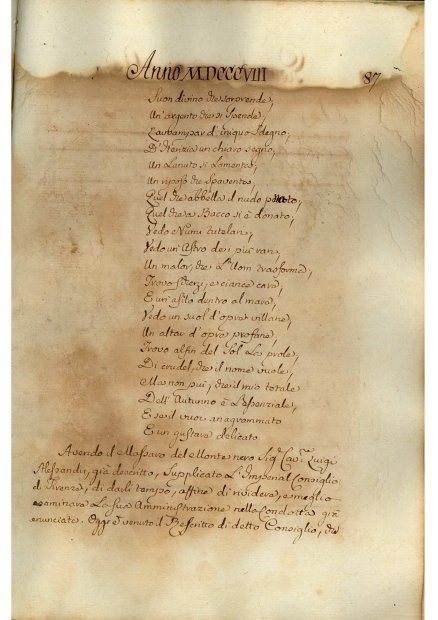 Anno MDCCCVIII 87
Suon divino che sorprende,
Un' argento che si spende,
L'avvampar d'iniquo sdegno,
D'Iterizia un chiaro segno,
Un Lanuto si Lamenta,
Un che Spaventa,
Quel che abbella il nudo prato,
Quel che a Bacco si è donato,
Vedo Numi tutelari,
Vedo un' Astro de i più rari,
Un malor, che L'Uom trasforma,
Trovo scherzi, e ciance care,
E un' asilo dentro al mare,
Vedo un suol d'opre villane,
Un altar d'opre profane,
Trovo alfin del Sol La prole,
Di crudel, che il nome vuole,
Ma non più, che il mio totale
Dell' Autunno è L'essenziale,
E se il vuoi anagrammato
E un gustare delicato
Avendo il Massaro del Monte nero Sig.r Cav.r Luigi
Alessandri, già descritto, Supplicato L'Imperial Consiglio
di Firenze, di darli tempo, affine di rividere, e meglio
esaminare La sua Amministrazione nella Condotta già
enunciata. Oggi è venuto il Rescritto di detto Consiglio, che